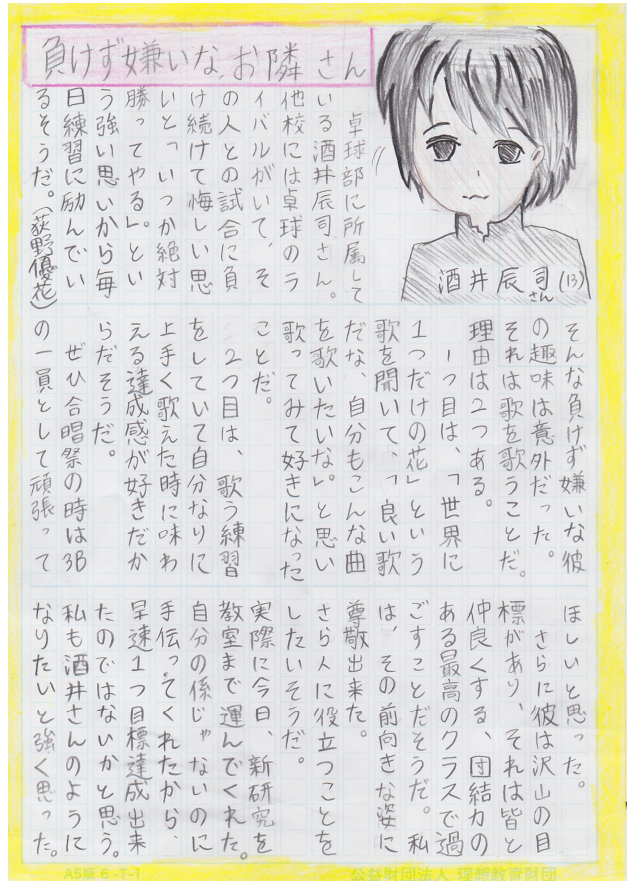 負けず嫌いなお隣さん
酒井辰司さん(13)
卓球部に所属して
いる酒井辰司さん。
他校には卓球のラ
イバルがいて、そ
の人との試合に負
け続けて悔しい思
いと「いつか絶対
勝ってやる」。とい
う強い思いから毎
日練習に励んでい
るそうだ。(荻野優花)
そんな負けず嫌いな彼
の趣味は意外だった。
それは歌を歌うことだ。
理由は2つある。
1つ目は、「世界に
1つだけの花」という
歌を聞いて、「良い歌
だな、自分もこんな曲
を歌いたいな」と思い
歌ってみて好きになった
ことだ。
2つ目は、歌う練習
をしていて自分なりに
上手く歌えた時に味わ
える達成感が好きだか
らだそうだ。
ぜひ合唱祭の時は3B
の一員として頑張って
ほしいと思った。
さらに彼は沢山の目
標があり、それは皆と
仲良くする、団結力の
ある最高のクラスで過
ごすことだそうだ。私
は、その前向きな姿に
尊敬出来た。
さら人に役立つことを
したいそうだ。
実際に今日、新研究を
教室まで運んでくれた。
自分の係じゃないのに
手伝ってくれたから、
早速1つ目標達成出来
たのではないかと思う。
私も酒井さんのように
なりたいと強く思った。
A5版 6-T-1
公益財団法人 理想教育財団